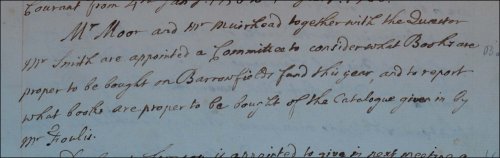 Courant from 4th
Mr. Moor and Mr Muirhead together with the Director
Mr Smith are appointed a Committee to consider what Books are
proper to be bought on Barrowfields fund this year, and to report
what books are proper to be bought of the Catalogue given in by
Mr Foulis.
is appointed to give in next meeting a